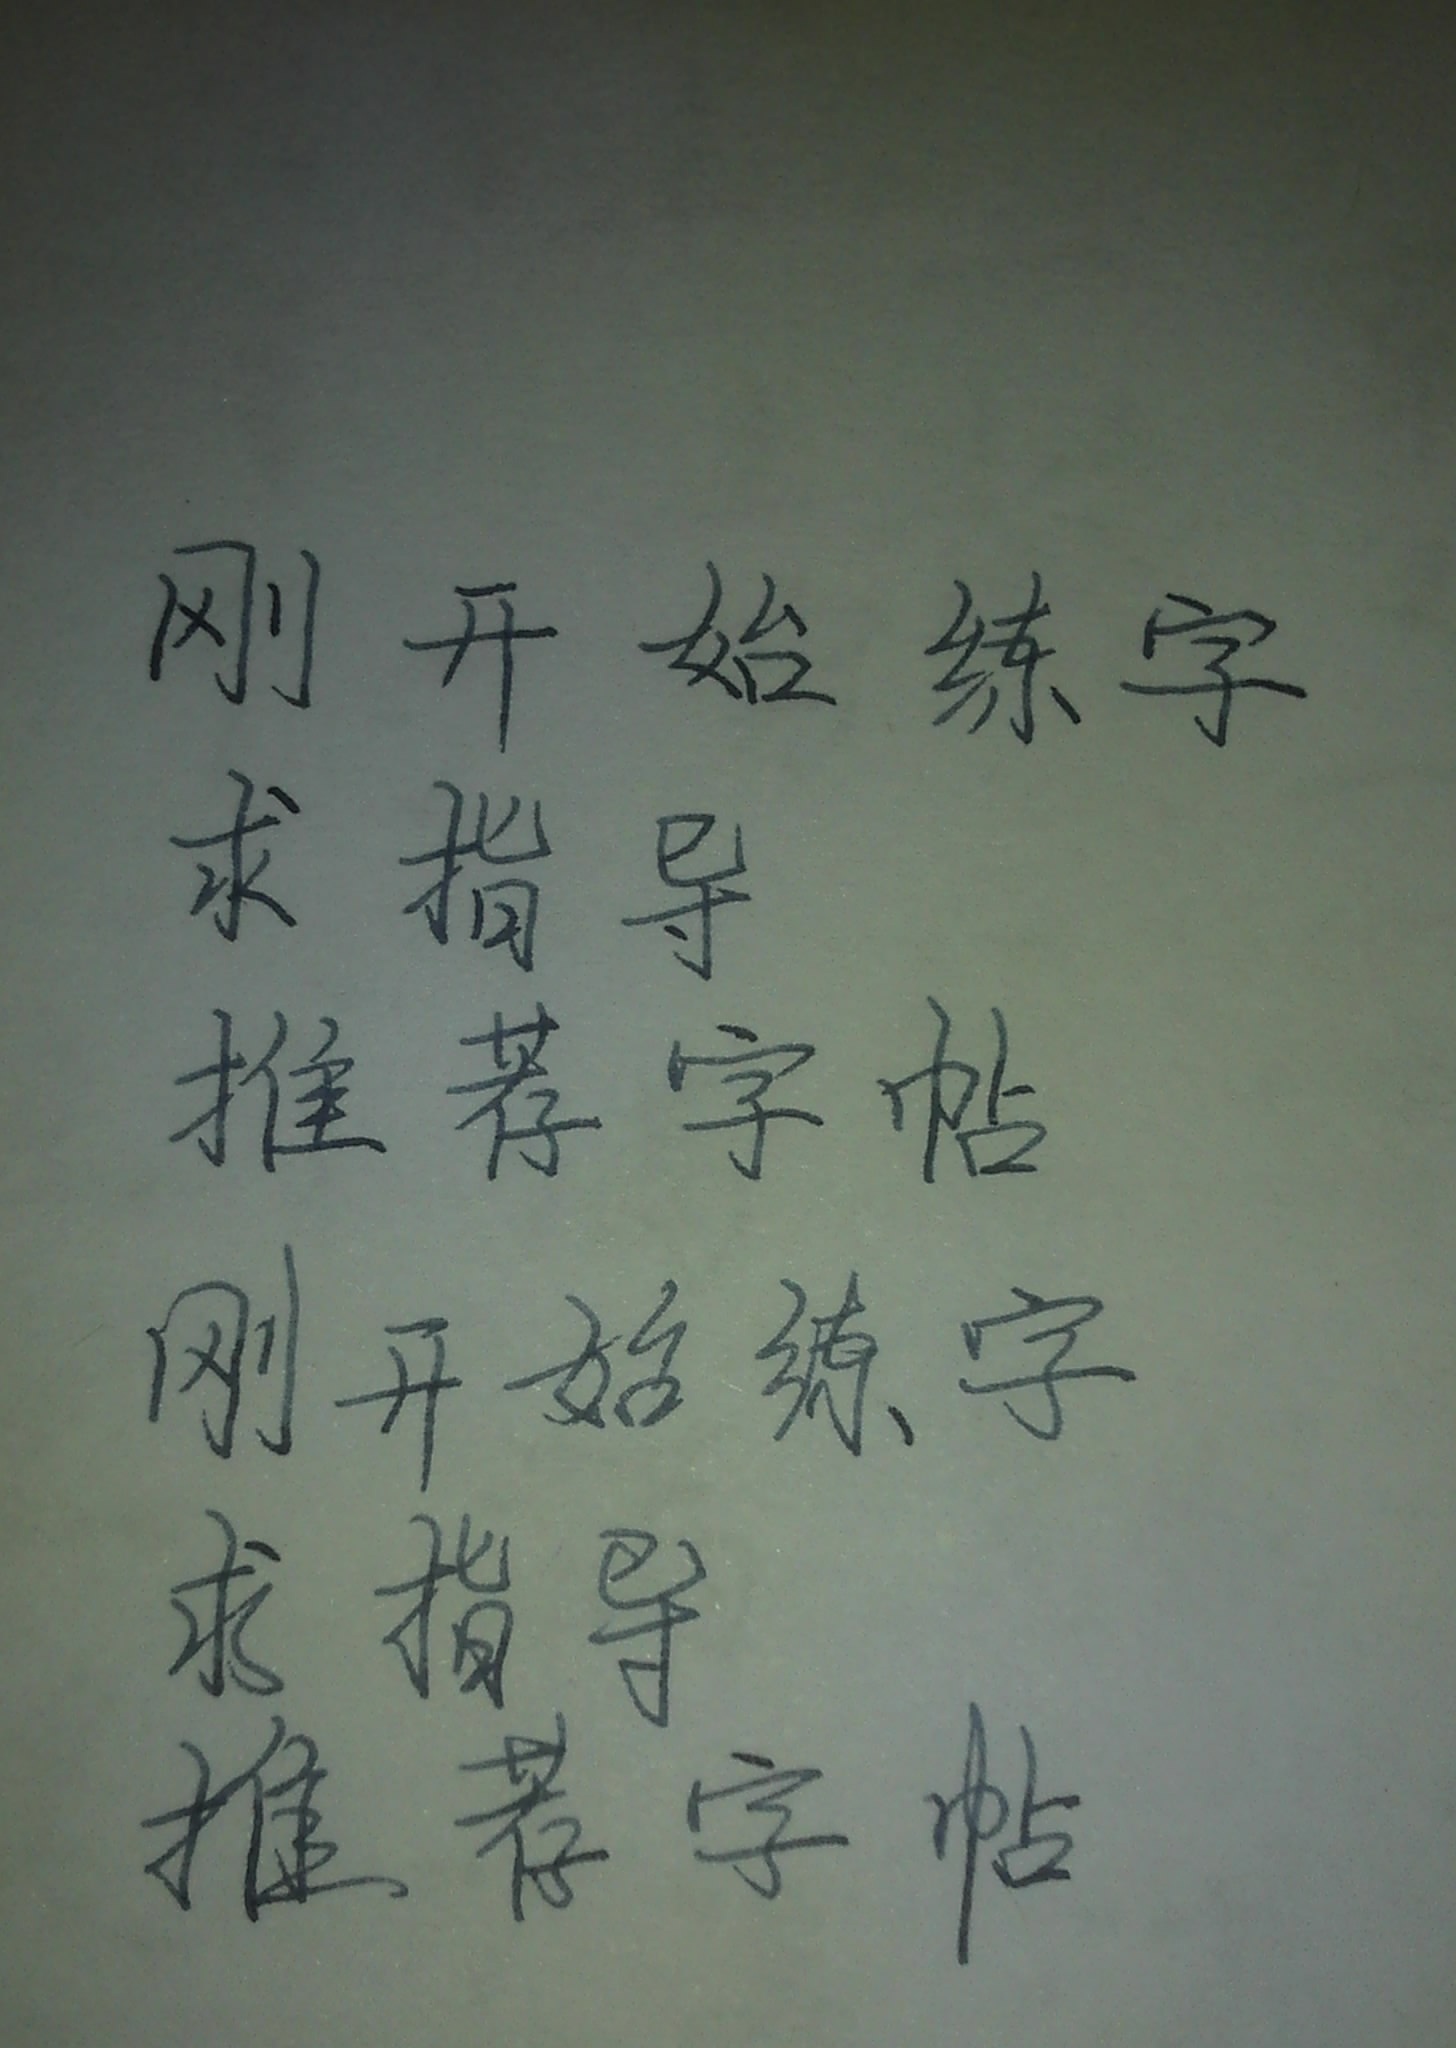 刚开始练字
求指导
推荐字帖
刚开始练字
求指导
推荐字帖